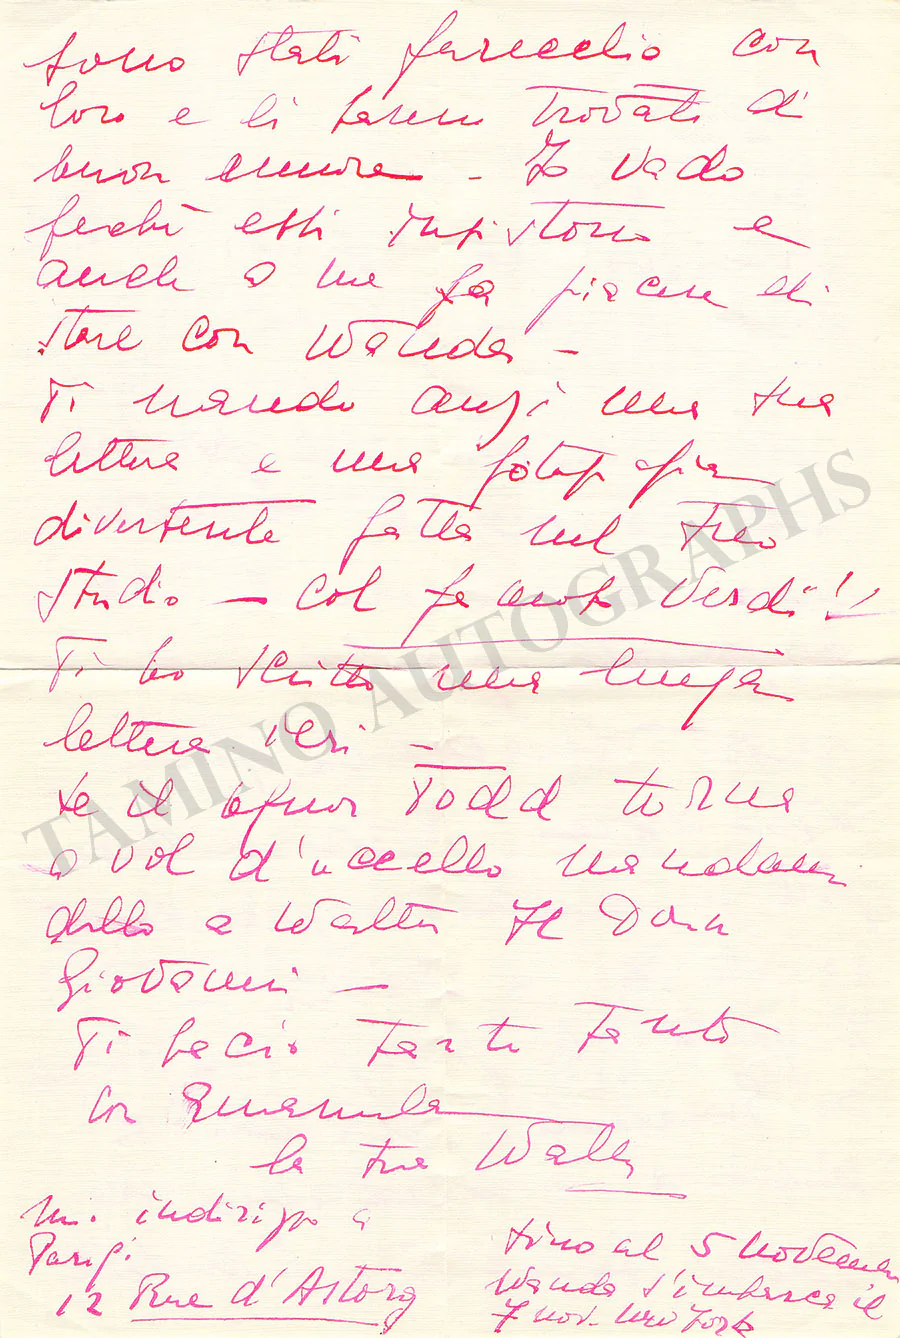 sono stati parecchio con
loro e li hanno trovati di
buon umore - Io vado
perchè essi insistono e
anche a me fa piacere di
stare con Wanda -
Ti mando anzi una tua
lettera e una fotografia
divertente fatta nel tuo
studio - col famoso Verdi!!
Ti ho scritto una lunga
lettera ieri -
Se il signor Todd torna
a vol d'uccello mandami
dillo a Walter Il Don
Giovanni -
Ti bacio tanto tanto
con Emanuela
la tua Wally
mio indirizzo a
Parigi
12 Rue d'Astorg
fino al 5 novembre
Wanda s'imbarca il
7 nov. New York
TAMINO AUTOGRAPHS